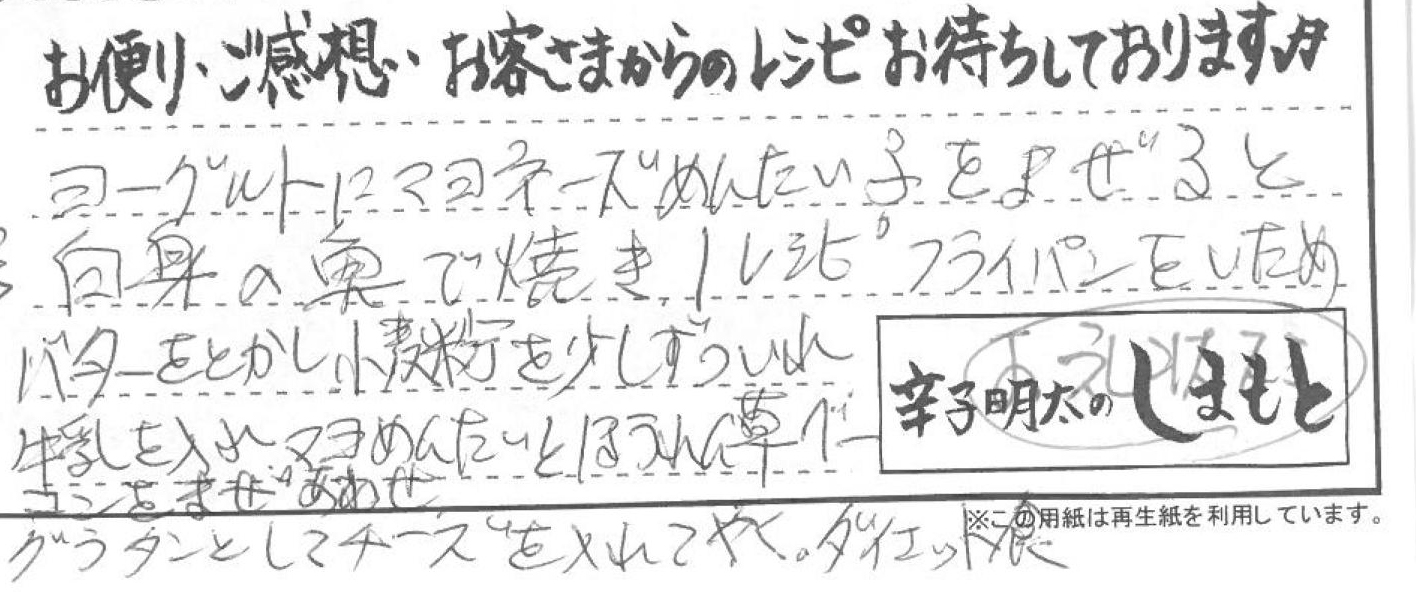 お便り・ご感想・お客さまからのレシピお待ちしております♬
ヨーグルトにマヨネーズめんたい子をまぜると
白身の魚で焼き、1レシピ フライパンをいため
バターをとかし小麦粉を少しずついれ
牛乳を入れマヨめんたいとほうれん草ベー
コンをまぜあわせ
グラタンとしてチーズを入れてやく。ダイエット食
辛子明太のしまもと
※この用紙は再生紙を利用しています。